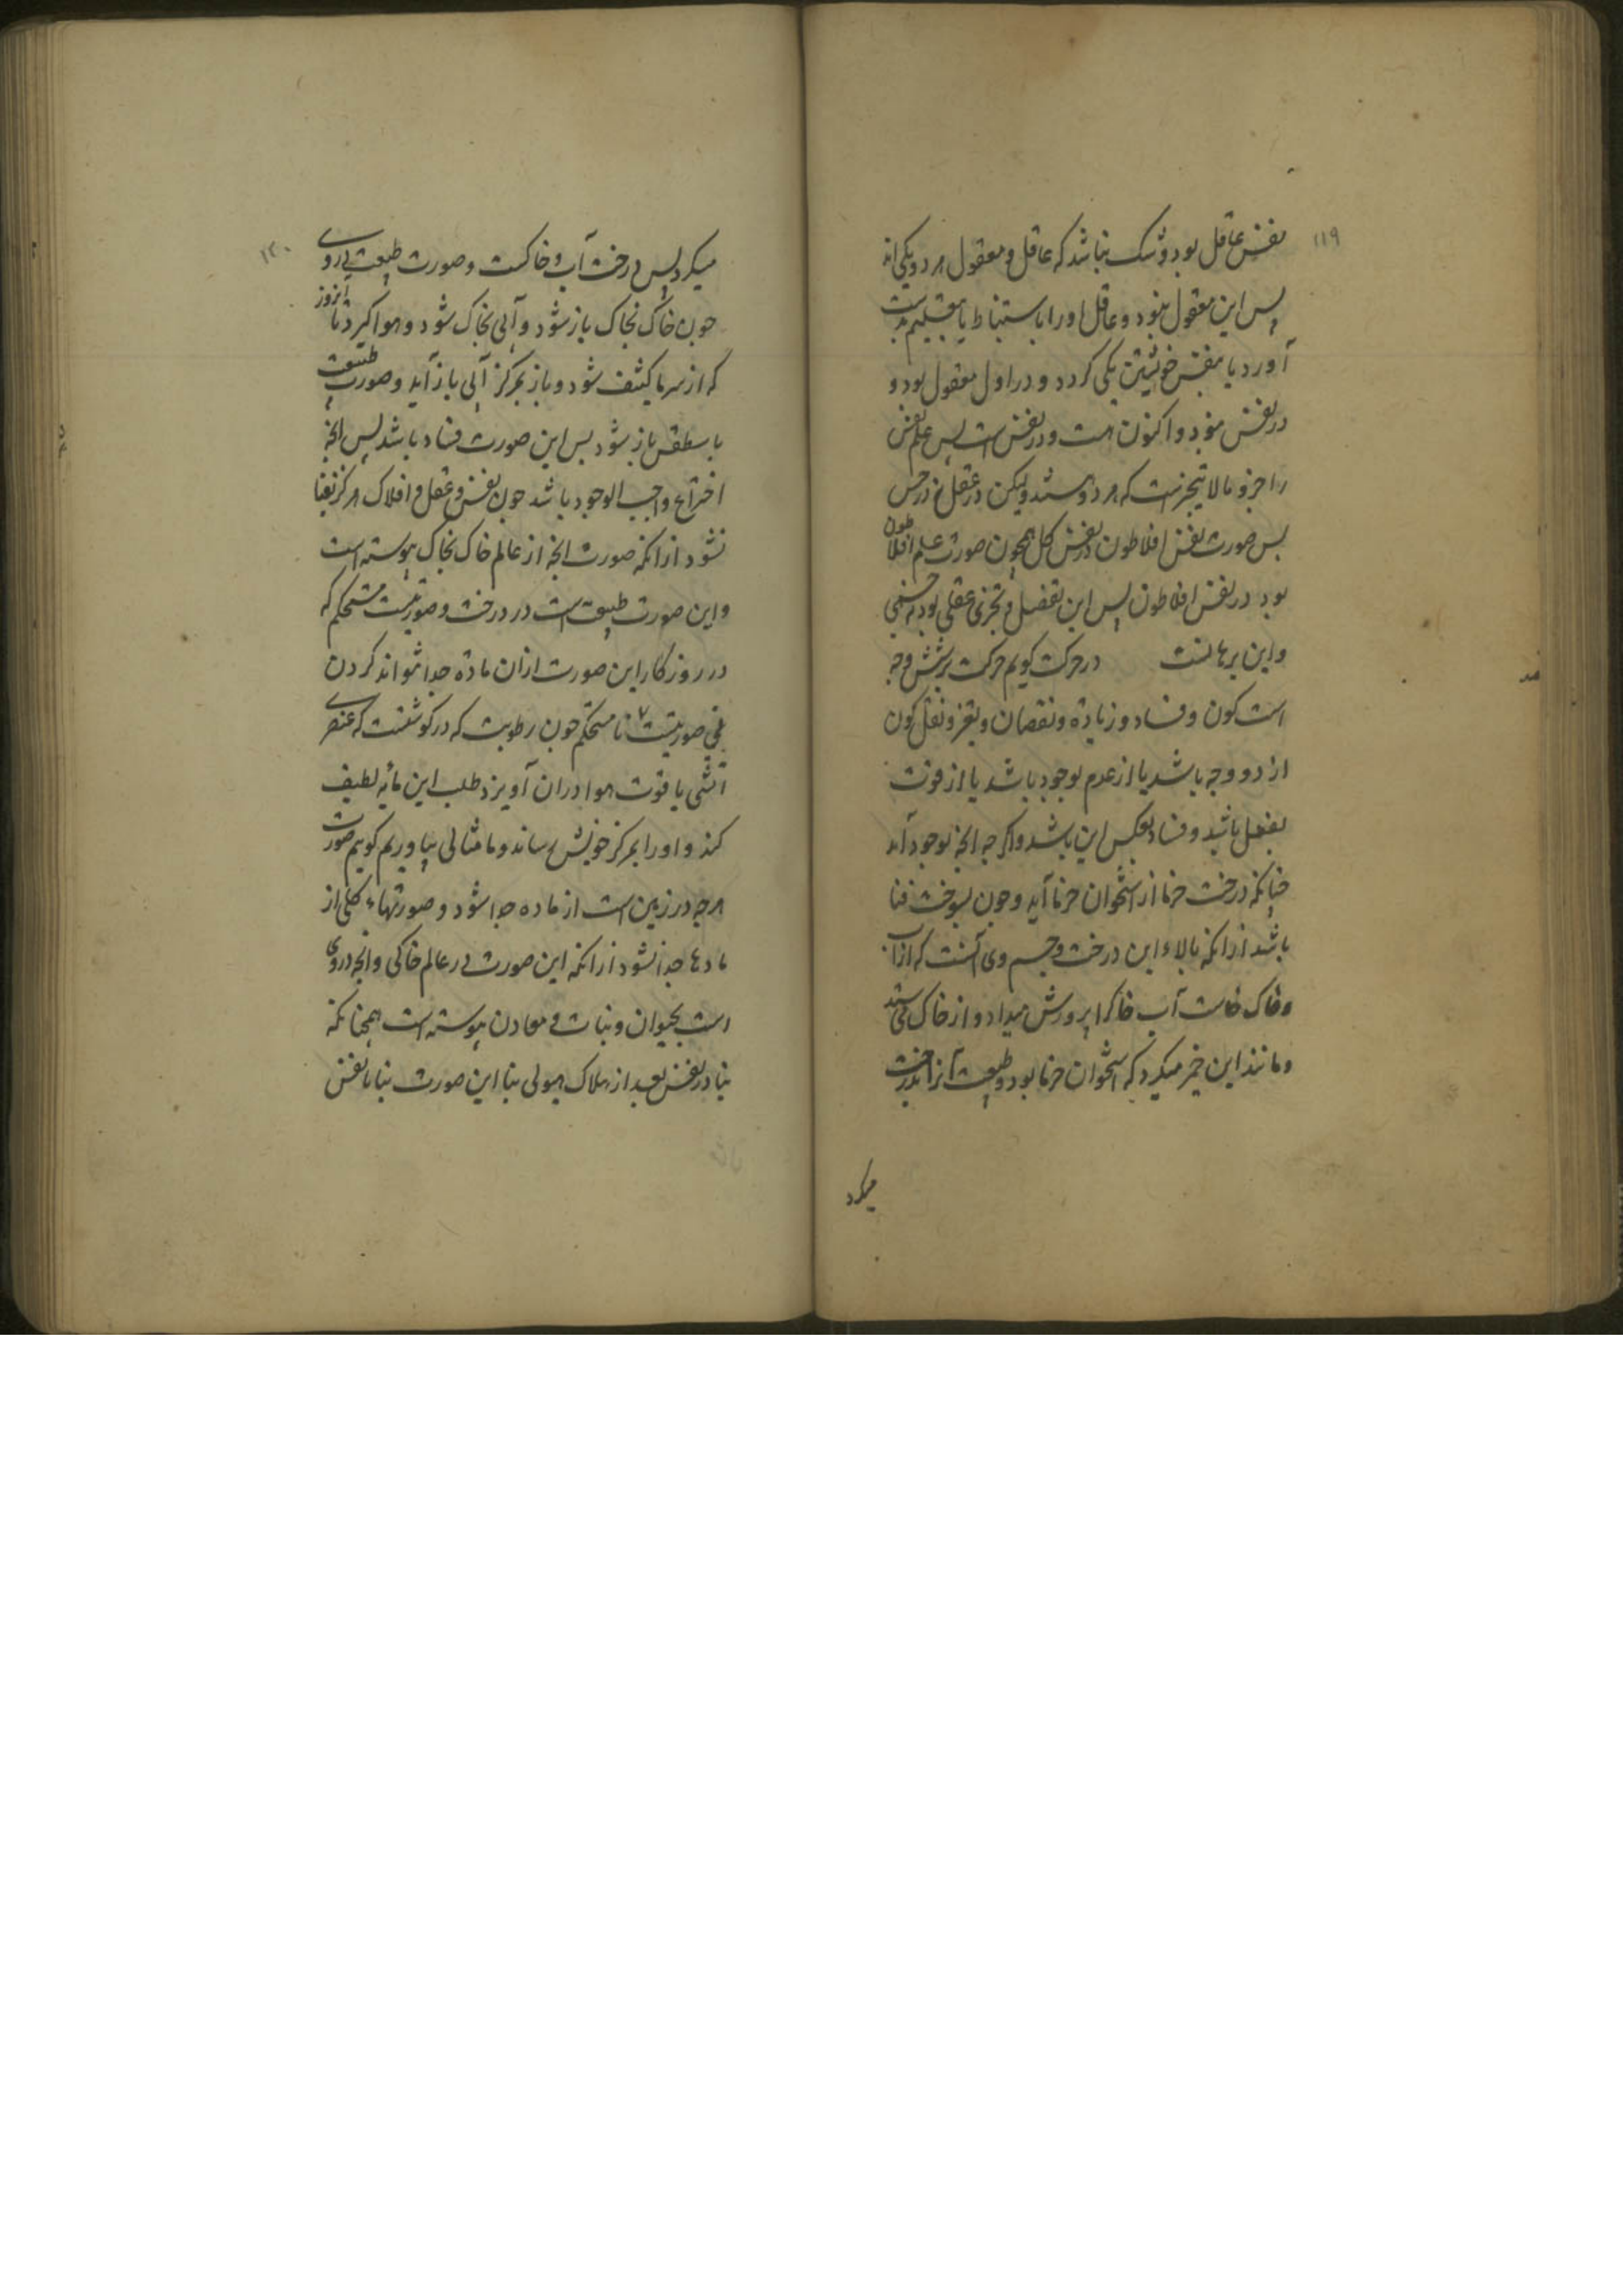 ۱۱۹
نفس عاقل بود و شک نباشد که عاقل و معقول هر دو یکی اند
پس این معقول نبود و عاقل او را باستنباط یا بتعلیم بدست
آورد با نفس خویشتن یکی کردد و در اول معقول بود و
در نفس نبود و اکنون هست و در نفس است پس علم نفس
را جزو ما لا یتجزیست که هر دو هستند ولیکن در عقل نه در حس
پس صورت نفس افلاطون در نفس کل همچون صورت علم افلاطون
بود در نفس افلاطون پس این تفصیل و تجزی عقلی بود نه حسی
و این برهانست در حرکت کویم حرکت بر شش وجه
است کون و فساد و زیادة و نقصان و تغیر و نقل کون
از دو وجه باشد یا از عدم بوجود باشد یا از قوت
بفعل باشد و فساد بعکس این باشد و اکر جه انجه بوجود آمد
جنانکه درخت خرما از استخوان خرما آید و جون بسوخت فنا
باشد از انکه بالاء این درخت و جسم وی آنست که از آب
و خاک خاست آب خاکرا پرورش میداد و از خاک می ستد
و مانند این خبر میکرد که استخوان خرما بود و طبیعت آنرا بدرخت
میکرد
۱۲۰
میکرد پس درخت آب و خاکست و صورت طبیعت در وی
جون خاک بخاک باز شود و آبی بخاک شود و هوا کیرد تا انروز
که از سرما کثیف شود و باز بمرکز آبی باز آید و صورت طبیعت
باسطقس باز شود پس این صورت فساد باشد پس انجه
اختراع واجب الوجود باشد جون نفس و عقل و افلاک هرکز بفنا
نشود از انکه صورت انجه از عالم خاک بخاک پیوسته است
و این صورت طبیعت است در درخت و صورتیست مستحکم که
در روزکار این صورت از ان مادة جدا نتواند کردن
بلی صورتیست نا مستحکم جون رطوبت که در کوشتست که عنصر
آتشی یا قوت هوا در ان آویزد طلب این مایه لطیف
کند و او را بمرکز خویش رساند و ما مثالی بیاوریم کویم صورت
هر جه در زمین است از ماده جدا شود و صورتهاء کلی از
مادها جدا نشود از انکه این صورت در عالم خاکی و انجه در وی
است بحیوان و نبات و معادن پیوسته است همجنانکه
بنا در نفس بعد از هلاک هیولی بنا این صورت بنا با نفس